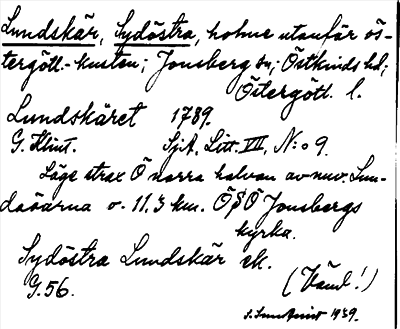 Lundskär, Sydöstra, holme utanför ös-
tergötl.-kusten; Jonsberg sn; Östkinds hd;
Östergötl. l.
Lundskäret 1789.
G. Klint. SjA, Litt. VII, N:o 9.
Läge strax Ö norra halvan av nuv. Lun-
daöarna o. 11.3 km. ÖSÖ Jonsbergs
kyrka.
Sydöstra Lundskär ek.
G.56. (Väml!)
1939.